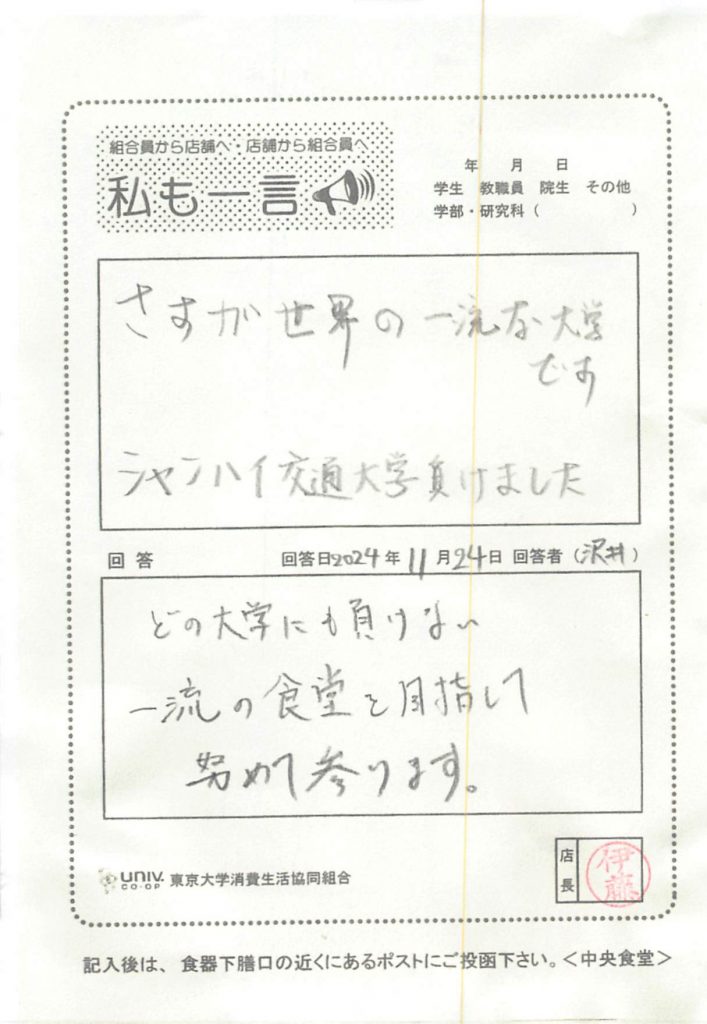 組合員から店舗へ・店舗から組合員へ
私も一言
年 月 日
学生 教職員 院生 その他
学部・研究科（ ）
さすが世界の一流な大学
です
シャンハイ交通大学負けました
回答 回答日2024年11月24日 回答者（沢井）
どの大学にも負けない
一流の食堂を目指して
努めて参ります。
店長 伊藤
UNIV. CO-OP 東京大学消費生活協同組合
記入後は、食器下膳口の近くにあるポストにご投函下さい。＜中央食堂＞